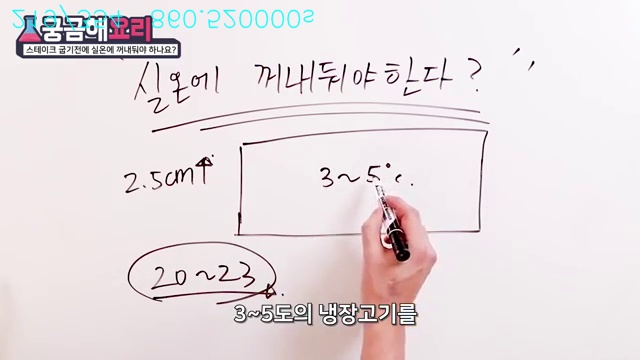 궁금해요리
스테이크 굽기전에 실온에 꺼내둬야 하나요?
"실온에 꺼내둬야한다?"
2.5cm↑
3~5°c.
20~23
3~5도의 냉장고기를